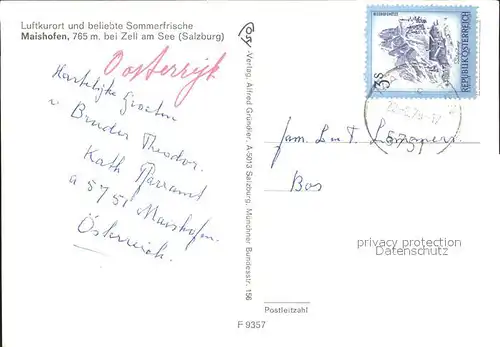 Luftkurort und beliebte Sommerfrische
Maishofen, 765 m. bei Zell am See (Salzburg)
Oosterrijk
Hartelijke Groeten
v Bruder Theodor.
Kath Pfarramt
a 5751 Maishofen.
Österreich.
Cosy-Verlag, Alfred Gründler, A-5013 Salzburg, Münchner Bundesstr. 156
3S
REPUBLIK ÖSTERREICH
5751
fam. L. u T.
Bos
privacy protection
Datenschutz
Postleitzahl
F 9357